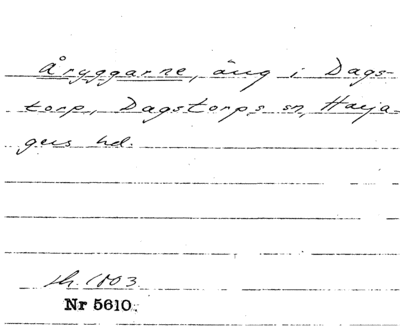 Åryggarne, äng i Dags-
torp, Dagstorps sn, Harja-
gers hd.
sk. 1803
Nr 5610.